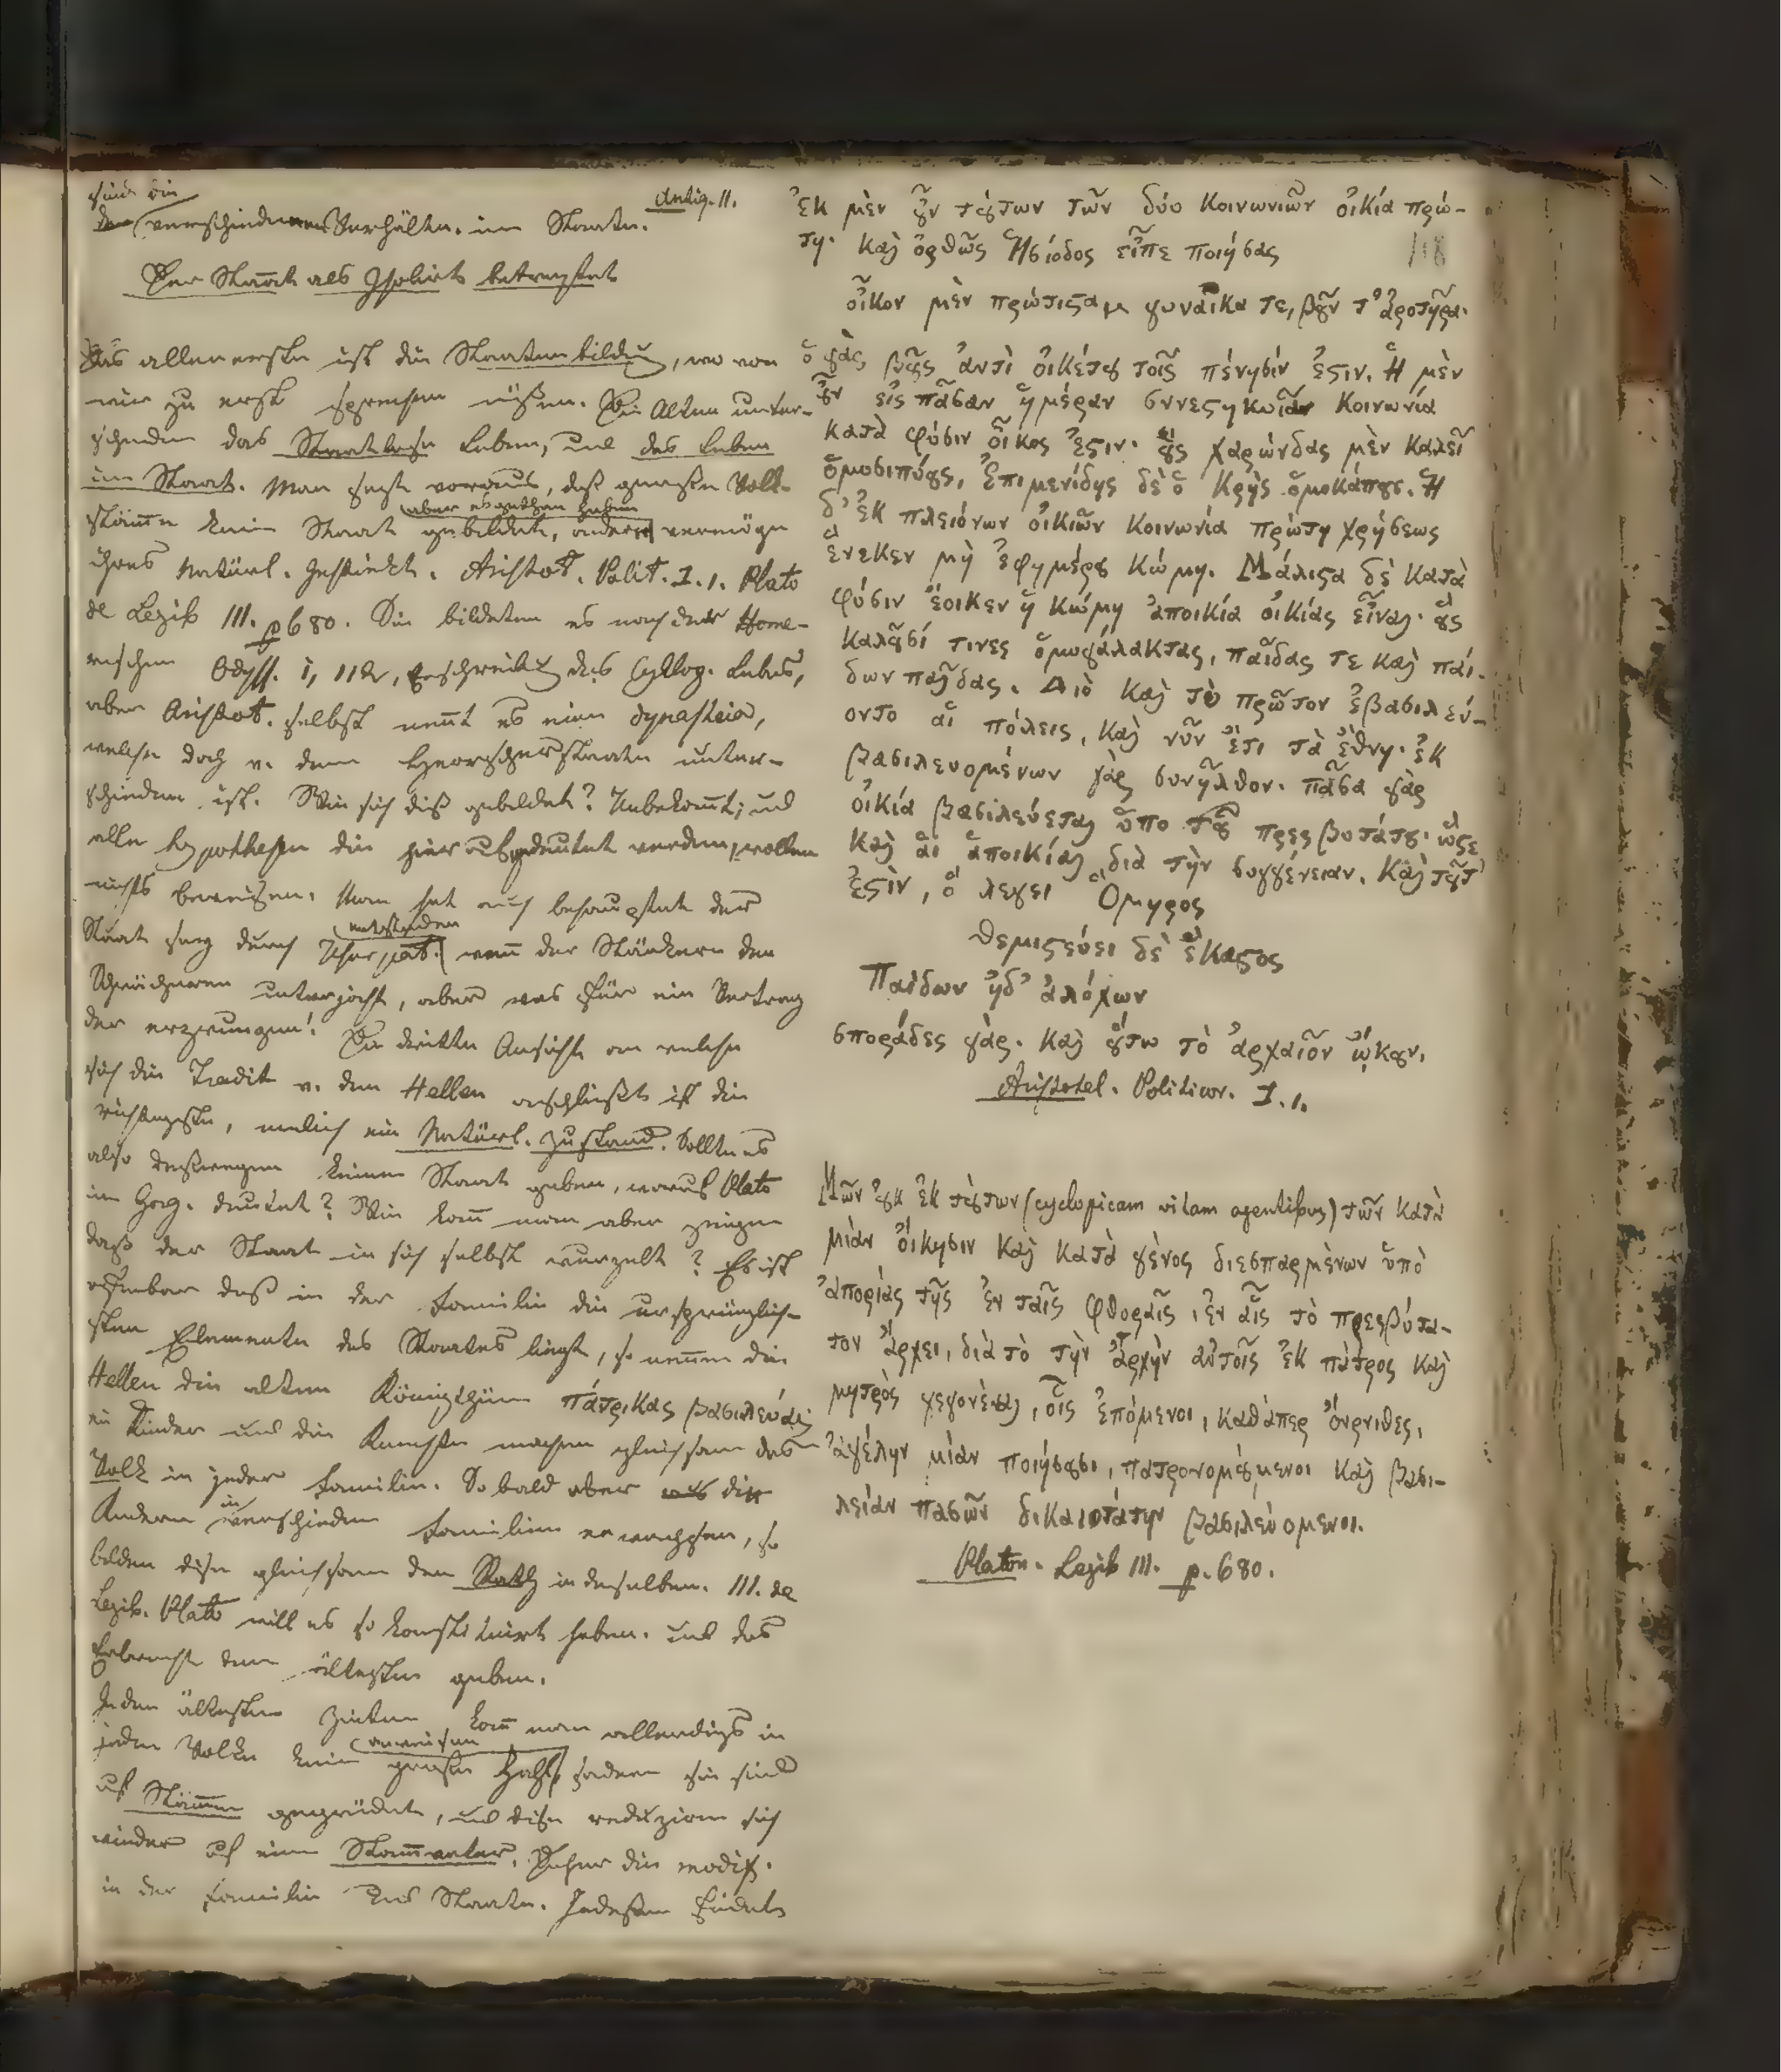 sind ein
der verschiednen Verhältn. im Staate. Antiq. II.
Der Staat als Isolirt betrachtet
Das allererste ist die Staatenbildung, wo von
wir zu erst sprechen müßen. Die Alten unter-
schieden das Staatlose Leben, und das Leben
im Staat. Man sagt voraus, daß gewiße Volk-
aber es gethan haben
stäme kein Staat gebildet, andere vermöge
ihres Natürl. Instinckt. Aristot. Polit. I. 1. Plato
de Legib III. p 680. Die bildeten es nach der Home-
rischen Odyss. i, 112, Beschreibung des Cyklop. Lebens,
aber Aristot. selbst nent es eine dynasteia,
welche doch v. dem Herrscherstaate unter-
schieden ist. Wie sich diß gebildet? Unbekant; und
alle hypothesen die hier aufgedeutet werden, wollen
nichts beweisen. Man hat auch behauptet der
entstanden
Staat sey durch Usurpat. wenn der Stärkere den
Schwächeren unterjocht, aber was für ein Vertrag
der erzwungen! Die dritte Ansicht an welche
sich die Tradit v. den Hellen anschließt ist die
richtigste, nemlich ein Natürl. Zustand. Sollte es
also deßwegen keinen Staat geben, worauf Plato
im Gorg. deutet? Wie kann man aber zeigen
daß der Staat in sich selbst wurzelt? Es ist
offenbar daß in der Familie die ursprünglich-
sten Elemente des Staates liegt, so nennen die
Hellen die alten Königthüm πάτρικας βασιλείας
die Kinder und die Knechte machen gleichsam das
Volk in jeder Familie. So bald aber die
Andern in verschieden Familien erwachsen, so
bilden diese gleichsam den Rath in derselben. III. de
Legib. Plato will es so konstituirt haben. und das
Erbrecht dem ältesten geben.
In den ältesten Zeiten kann man allerdings in
anweisen
jeden Volke keine große Zahl, sondern sie sind
auf Stämme gegründet, und diese reduziren sich
wieder auf einen Stammvater. Daher die modif.
in der Familie des Staats. Indeßen findets
ἐκ μὲν ȣ̓͂ν τȣ́των τῶν δύο κοινωνιῶν οἰκία πρώ-
τη· καὶ ὀρθῶς Ἡσίοδος εἶπε ποιήσας
118
οἶκον μὲν πρώτιϛα γυναῖκα τε, βȣ͂ν τ' ἀροτῆρα·
ὁ γὰρ βȣ͂ς ἀντὶ οἰκέτȣ τοῖς πένησίν ἐϛιν. Ἡ μὲν
ȣ̓͂ν εἰς πᾶσαν ἡμέραν συνεϛηκυῖαν κοινωνία
κατὰ φύσιν οἶκος ἐϛιν· ȣ̔̀ς χαρώνδας μὲν καλεῖ
ὁμοσιπύȣς, Ἐπιμενίδης δὲ ὁ Κρὴς ὁμοκάπȣς. Ἡ
δ' ἐκ πλειόνων οἰκιῶν κοινωνία πρώτη χρήσεως
ἕνεκεν μὴ ἐφημέρȣ κώμη. Μάλιϛα δὲ κατὰ
φύσιν ἔοικεν ἡ κώμη ἀποικία οἰκίας εἶναι· ȣ̔̀ς
καλȣ͂σί τινες ὁμογάλακτας, παῖδας τε καὶ παί-
δων παῖδας. Διὸ καὶ τὸ πρῶτον ἐβασιλεύ-
οντο αἱ πόλεις, καὶ νῦν ἔτι τὰ ἔθνη· ἐκ
βασιλευομένων γὰρ συνῆλθον. πᾶσα γὰρ
οἰκία βασιλεύεται ὑπο τȣ͂ πρεςβυτάτȣ· ὥϛε
καὶ αἱ ἀποικίαι διὰ τὴν συγγένειαν. Καὶ τȣ͂τ'
ἐϛὶν, ὃ λεγει Ὁμηρος
θεμιϛεύει δὲ ἕκαϛος
Παίδων ἠδ' ἀλόχων
σποράδες γὰρ. καὶ ȣ̔́τω τὸ ἀρχαῖον ᾤκȣν.
Aristotel. Politicor. I. 1.
Μῶν ȣ̓κ ἐκ τȣ́των (cyclopicam vitam agentibus) τῶν κατὰ
μίαν οἴκησιν καὶ κατὰ γένος διεσπαρμένων ὑπὸ
ἀπορίας τῆς ἐν ταῖς φθοραῖς, ἐν αἷς τὸ πρεσβύτα-
τον ἄρχει, διὰ τὸ τὴν ἀρχὴν αὐτοῖς ἐκ πάτρος καὶ
μητρὸς γεγονέναι, οἷς ἑπόμενοι, καθάπερ ὄνρνιθες,
ἀγέλην μίαν ποιήσȣσι, πατρονομȣ́μενοι καὶ βασι-
λείαν πασῶν δικαιοτάτην βασιλευόμενοι.
Platon. Legib III. p. 680.